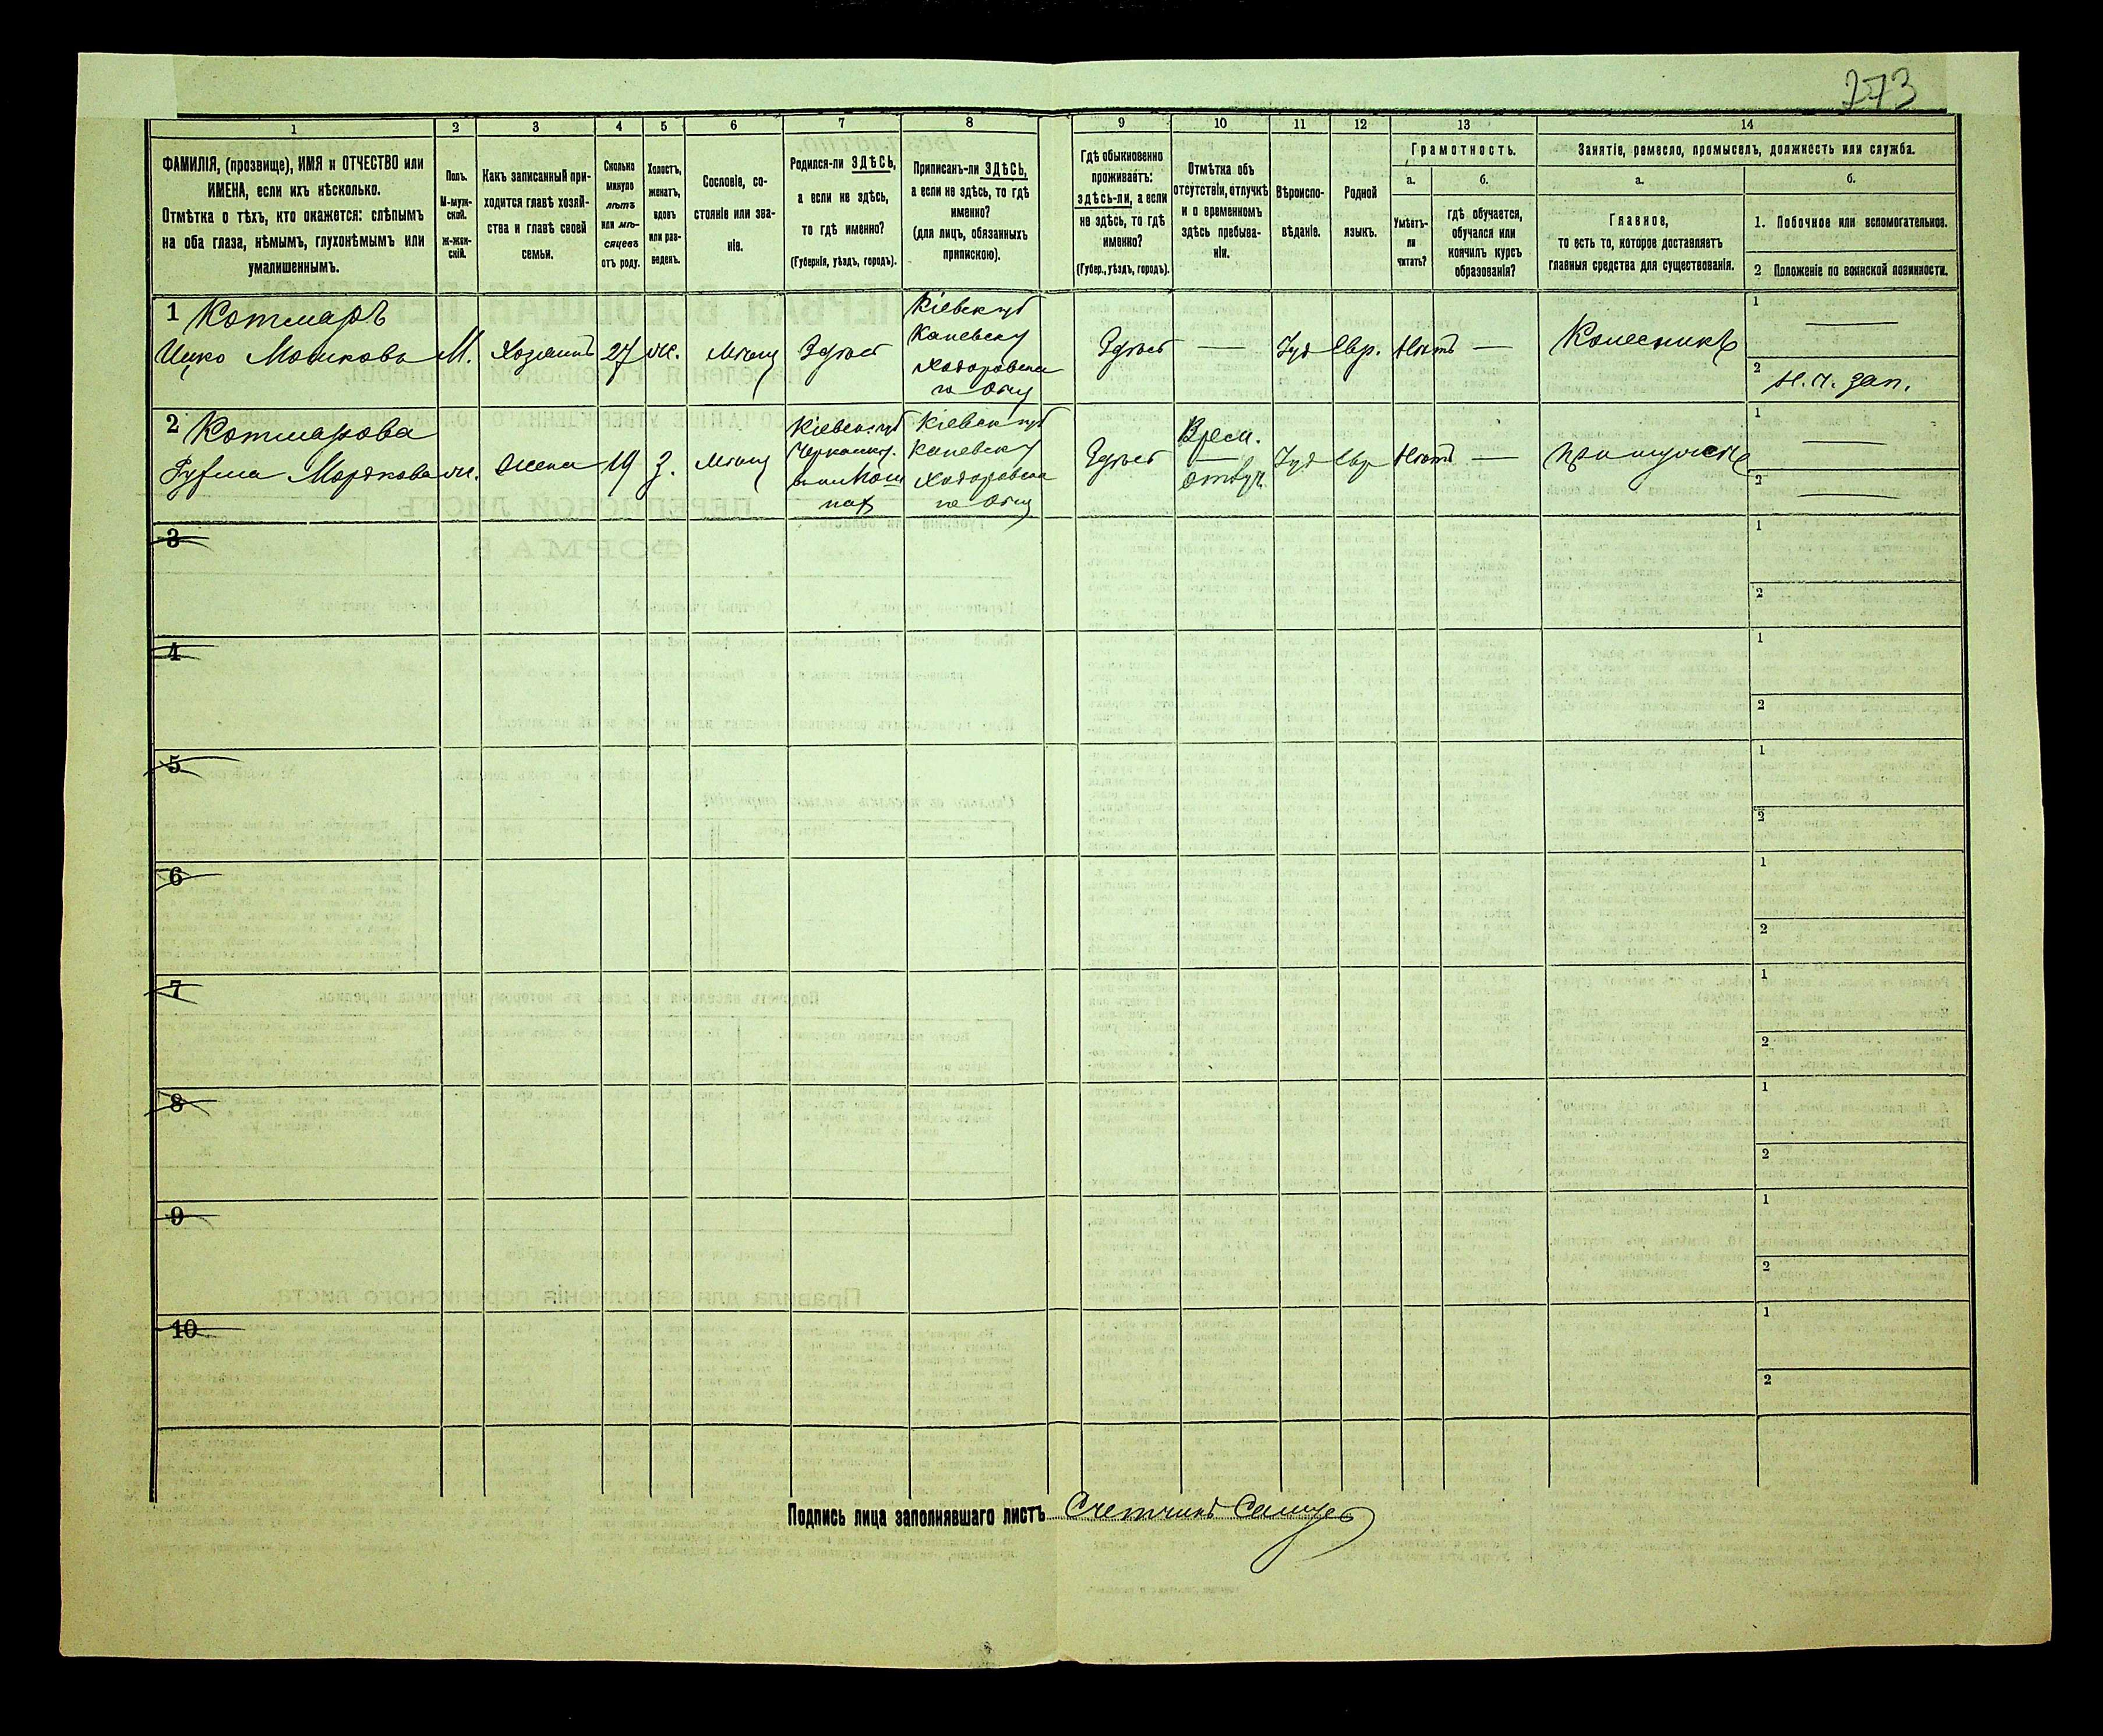 273
1 2 3 4 5 6 7 8 9 10 11 12 13 14
ФАМИЛІЯ, (прозвище), ИМЯ и ОТЧЕСТВО или
ИМЕНА, если ихъ нѣсколько.
Отмѣтка о тѣхъ, кто окажется: слѣпымъ
на оба глаза, нѣмымъ, глухонѣмымъ или
умалишеннымъ.
Полъ.
М-муж-
ской.
Ж-жен-
скій.
Какъ записанный при-
ходится главѣ хозяй-
ства и главѣ своей
семьи.
Сколько
минуло
лѣтъ
или мѣ-
сяцевъ
отъ роду.
Холостъ,
женатъ,
вдовъ
или раз-
веденъ.
Сословіе, со-
стояніе или зва-
ніе.
Родился-ли ЗДѢСЬ,
а если не здѣсь,
то гдѣ именно?
(Губернія, уѣздъ, городъ).
Приписанъ-ли ЗДѢСЬ,
а если не здѣсь, то гдѣ
именно?
(для лицъ, обязанныхъ
припиской).
Гдѣ обыкновенно
проживаетъ:
здѣсь-ли, а если
не здѣсь, то гдѣ
именно?
(Губер., уѣздъ, городъ).
Отмѣтка объ
отсутствіи, отлучкѣ
и о временномъ
здѣсь пребыва-
ніи.
Вѣроиспо-
вѣданіе.
Родной
языкъ.
Грамотность.
а.
Умѣетъ-
ли
читать?
б.
гдѣ обучается,
обучался или
кончилъ курсъ
образованія?
Занятіе, ремесло, промыселъ, должность или служба.
а.
Главное,
то есть то, которое доставляетъ
главныя средства для существованія.
б.
1. Побочное или вспомогательное.
2 Положеніе по воинской повинности.
1 Котляръ
Ицко Мошковъ М. Хозяинъ 27 ж. Мѣщ Здѣсь
Кіевск губ
Каневску
Ходоровска
го Общ
Здѣсь — Іуд Евр. Нѣтъ — Колесникъ
1 —
2 Н. ч. зап.
2 Котлярова
Мордкова ж. Жена 19 З. Мѣщ
Кіевск губ
Черкаску.
Кіевск губ
Каневску
Ходоровска
го Общ
Здѣсь
Врем.
отлуч.
Іуд Евр Нѣтъ — при мужѣ
1 —
2 —
3 1
2
4 1
2
5 1
2
6 1
2
7 1
2
8 1
2
9 1
2
10 1
2
Подпись лица заполнявшаго листъ Счетчикъ